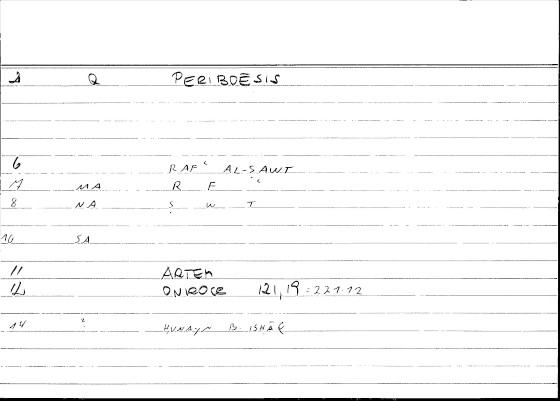 1 Q PERIBOĒSIS
6 RAFʿ AL-ṢAWT
7 MA R F ʿ
8 NA Ṣ W T
10 SA
11 ARTEM
12 ONIROCR 121,19 = 221.12
14 ? ḤUNAYN B. ISḤĀQ